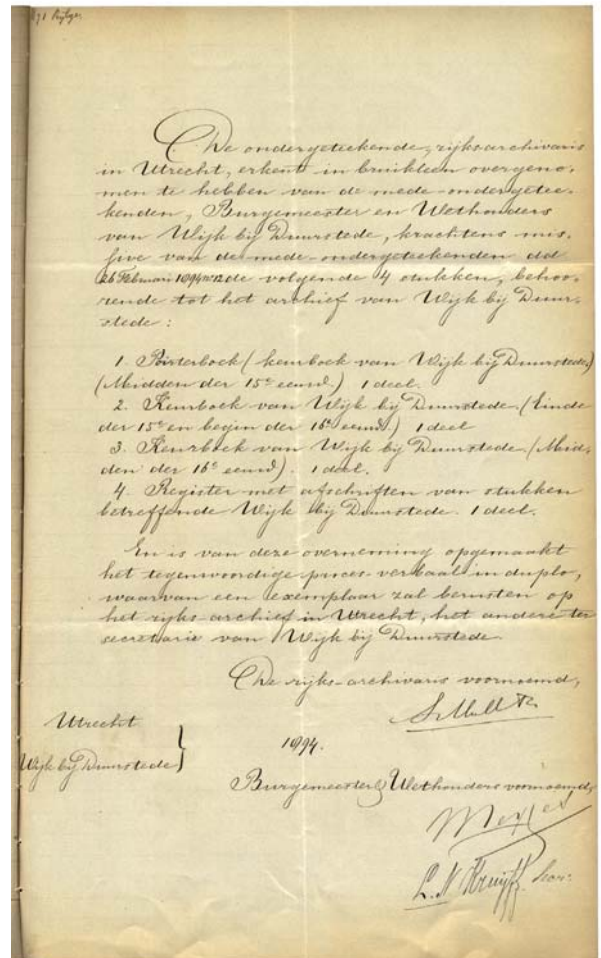 De ondergeteekende, rijksarchivaris
in Utrecht, erkent in bruikleen overgeno-
men te hebben van de mede-ondergetee-
kenden, Burgemeester en Wethouders
van Wijk bij Duurstede, krachtens mis-
sive van de mede-ondergeteekenden dd
26 Februari 1894 nº 12 de volgende 4 stukken, behoo-
rende tot het archief van Wijk bij Duur-
stede:
1. (keurboek van Wijk bij Duurstede)
(Midden der 15e eeuw.) 1 deel.
2. Keurboek van Wijk bij Duurstede. (Einde
der 15e en begin der 16e eeuw.) 1 deel
3. Keurboek van Wijk bij Duurstede. (Mid-
den der 16e eeuw). 1 deel.
4. Register met afschriften van stukken
betreffende Wijk bij Duurstede. 1 deel.
En is van deze overneming opgemaakt
het tegenwoordige proces-verbaal in duplo,
waarvan een exemplaar zal berusten op
het rijks-archief in Utrecht, het andere ter
secretarie van Wijk bij Duurstede.
De rijks-archivaris voornoemd,
S. Muller Fz.
Utrecht
Wijk bij Duurstede } 1894.
Burgemeester & Wethouders voornoemd,